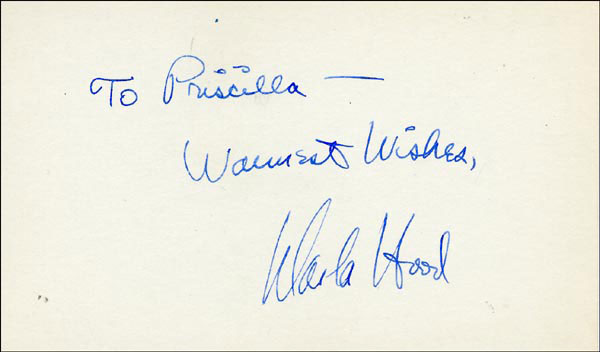 To Priscilla —
Warmest Wishes,
Darla Hood